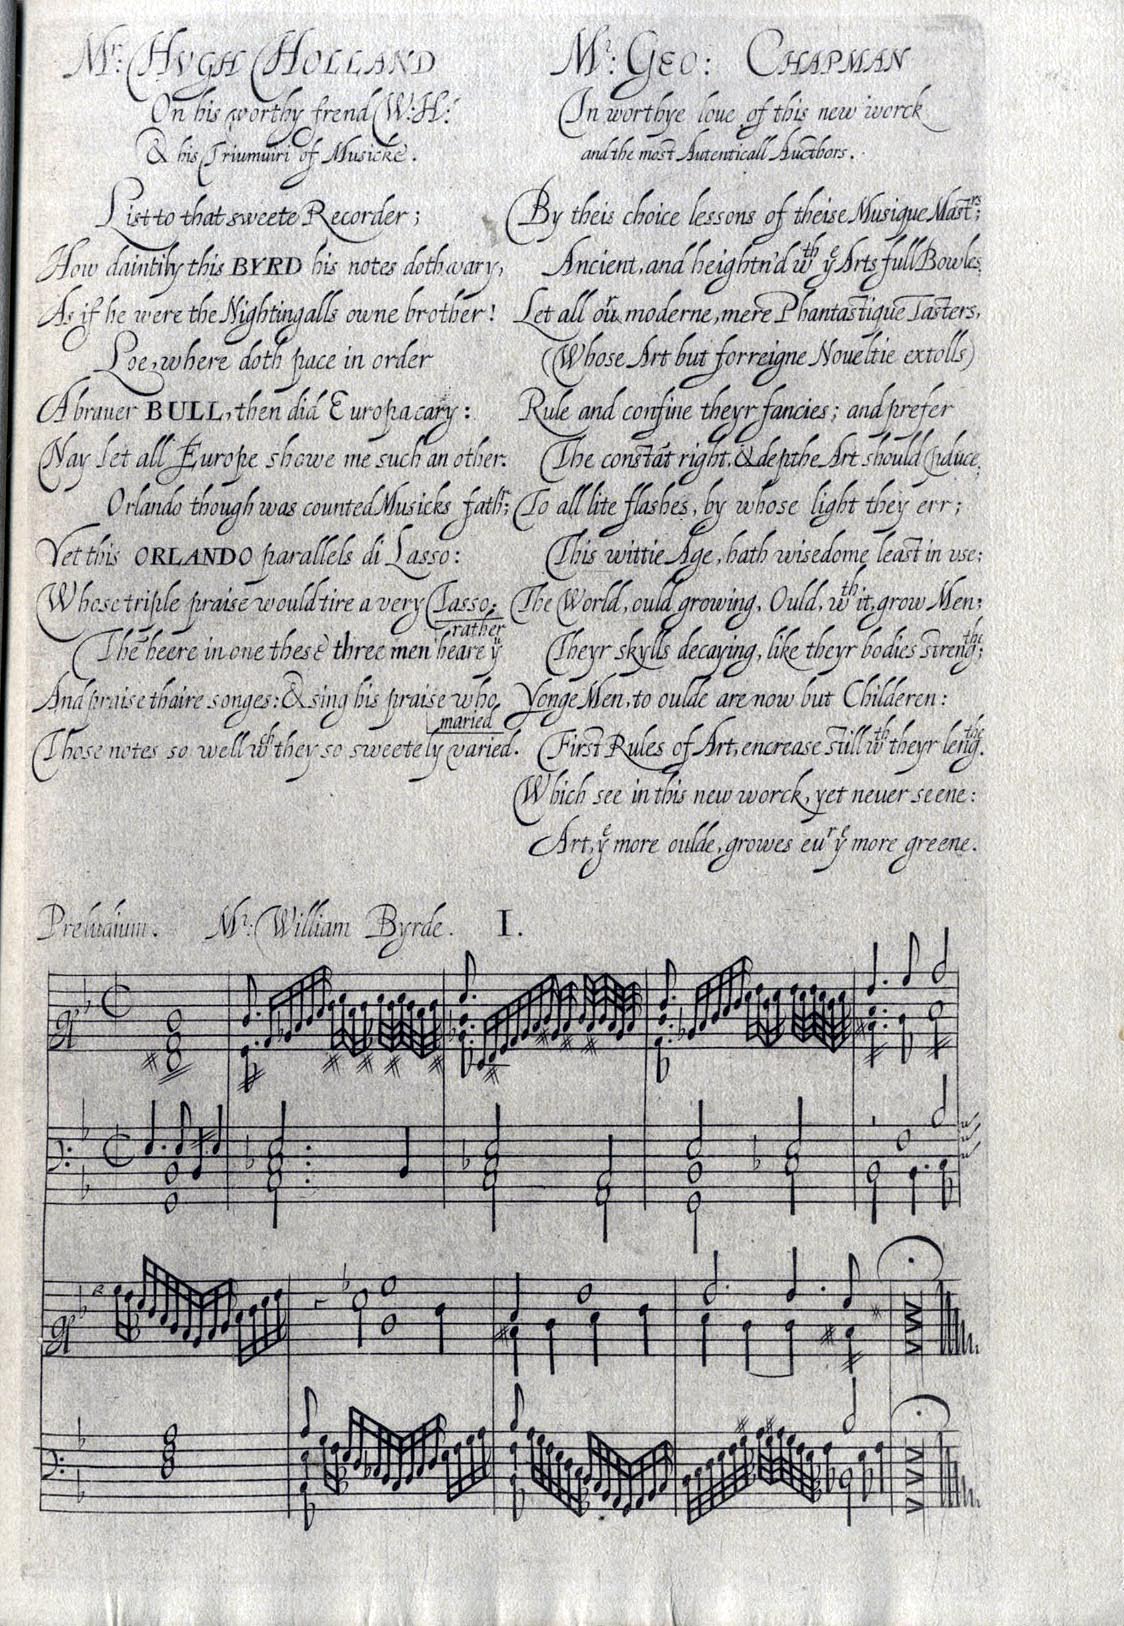 Mr: HVGH HOLLAND
On his worthy frend W:H:
& his Triumuiri of Musicke.
List to that sweete Recorder;
How daintily this BYRD his notes doth vary,
As if he were the Nightingalls owne brother!
Loe, where doth pace in order
A brauer BULL, then did Europa cary:
Nay let all Europe showe me such an other.
Orlando though was counted Musicks fathr;
Yet this ORLANDO parallels di Lasso:
Whose triple praise would tire a very Tasso;
The heere in one these three men heare yu rather
And praise thaire songes: & sing his praise who maried
Those notes so well wch they so sweetely varied.
Mr: GEO: CHAPMAN
In worthye loue of this new worck
and the most Autenticall Aucthors.
By theis choice lessons of theise Musique Mastrs;
Ancient, and heightn'd wth ye Arts full Bowles,
Let all our moderne, mere Phantastique Tasters,
(Whose Art but forreigne Noueltie extolls)
Rule and confine theyr fancies; and prefer
The constāt right, & depthe Art should produce,
To all lite flashes, by whose light they err;
This wittie Age, hath wisedome least in vse;
The World, ould growing, Ould, wth it, grow Men;
Theyr skylls decaying, like theyr bodies strengthe;
Yonge Men, to oulde are now but Childeren:
First Rules of Art, encrease still wth theyr lengthe.
Which see in this new worck, yet neuer seene:
Art, ye more oulde, growes eur ye more greene.
Preludium. Mr: William Byrde. I.